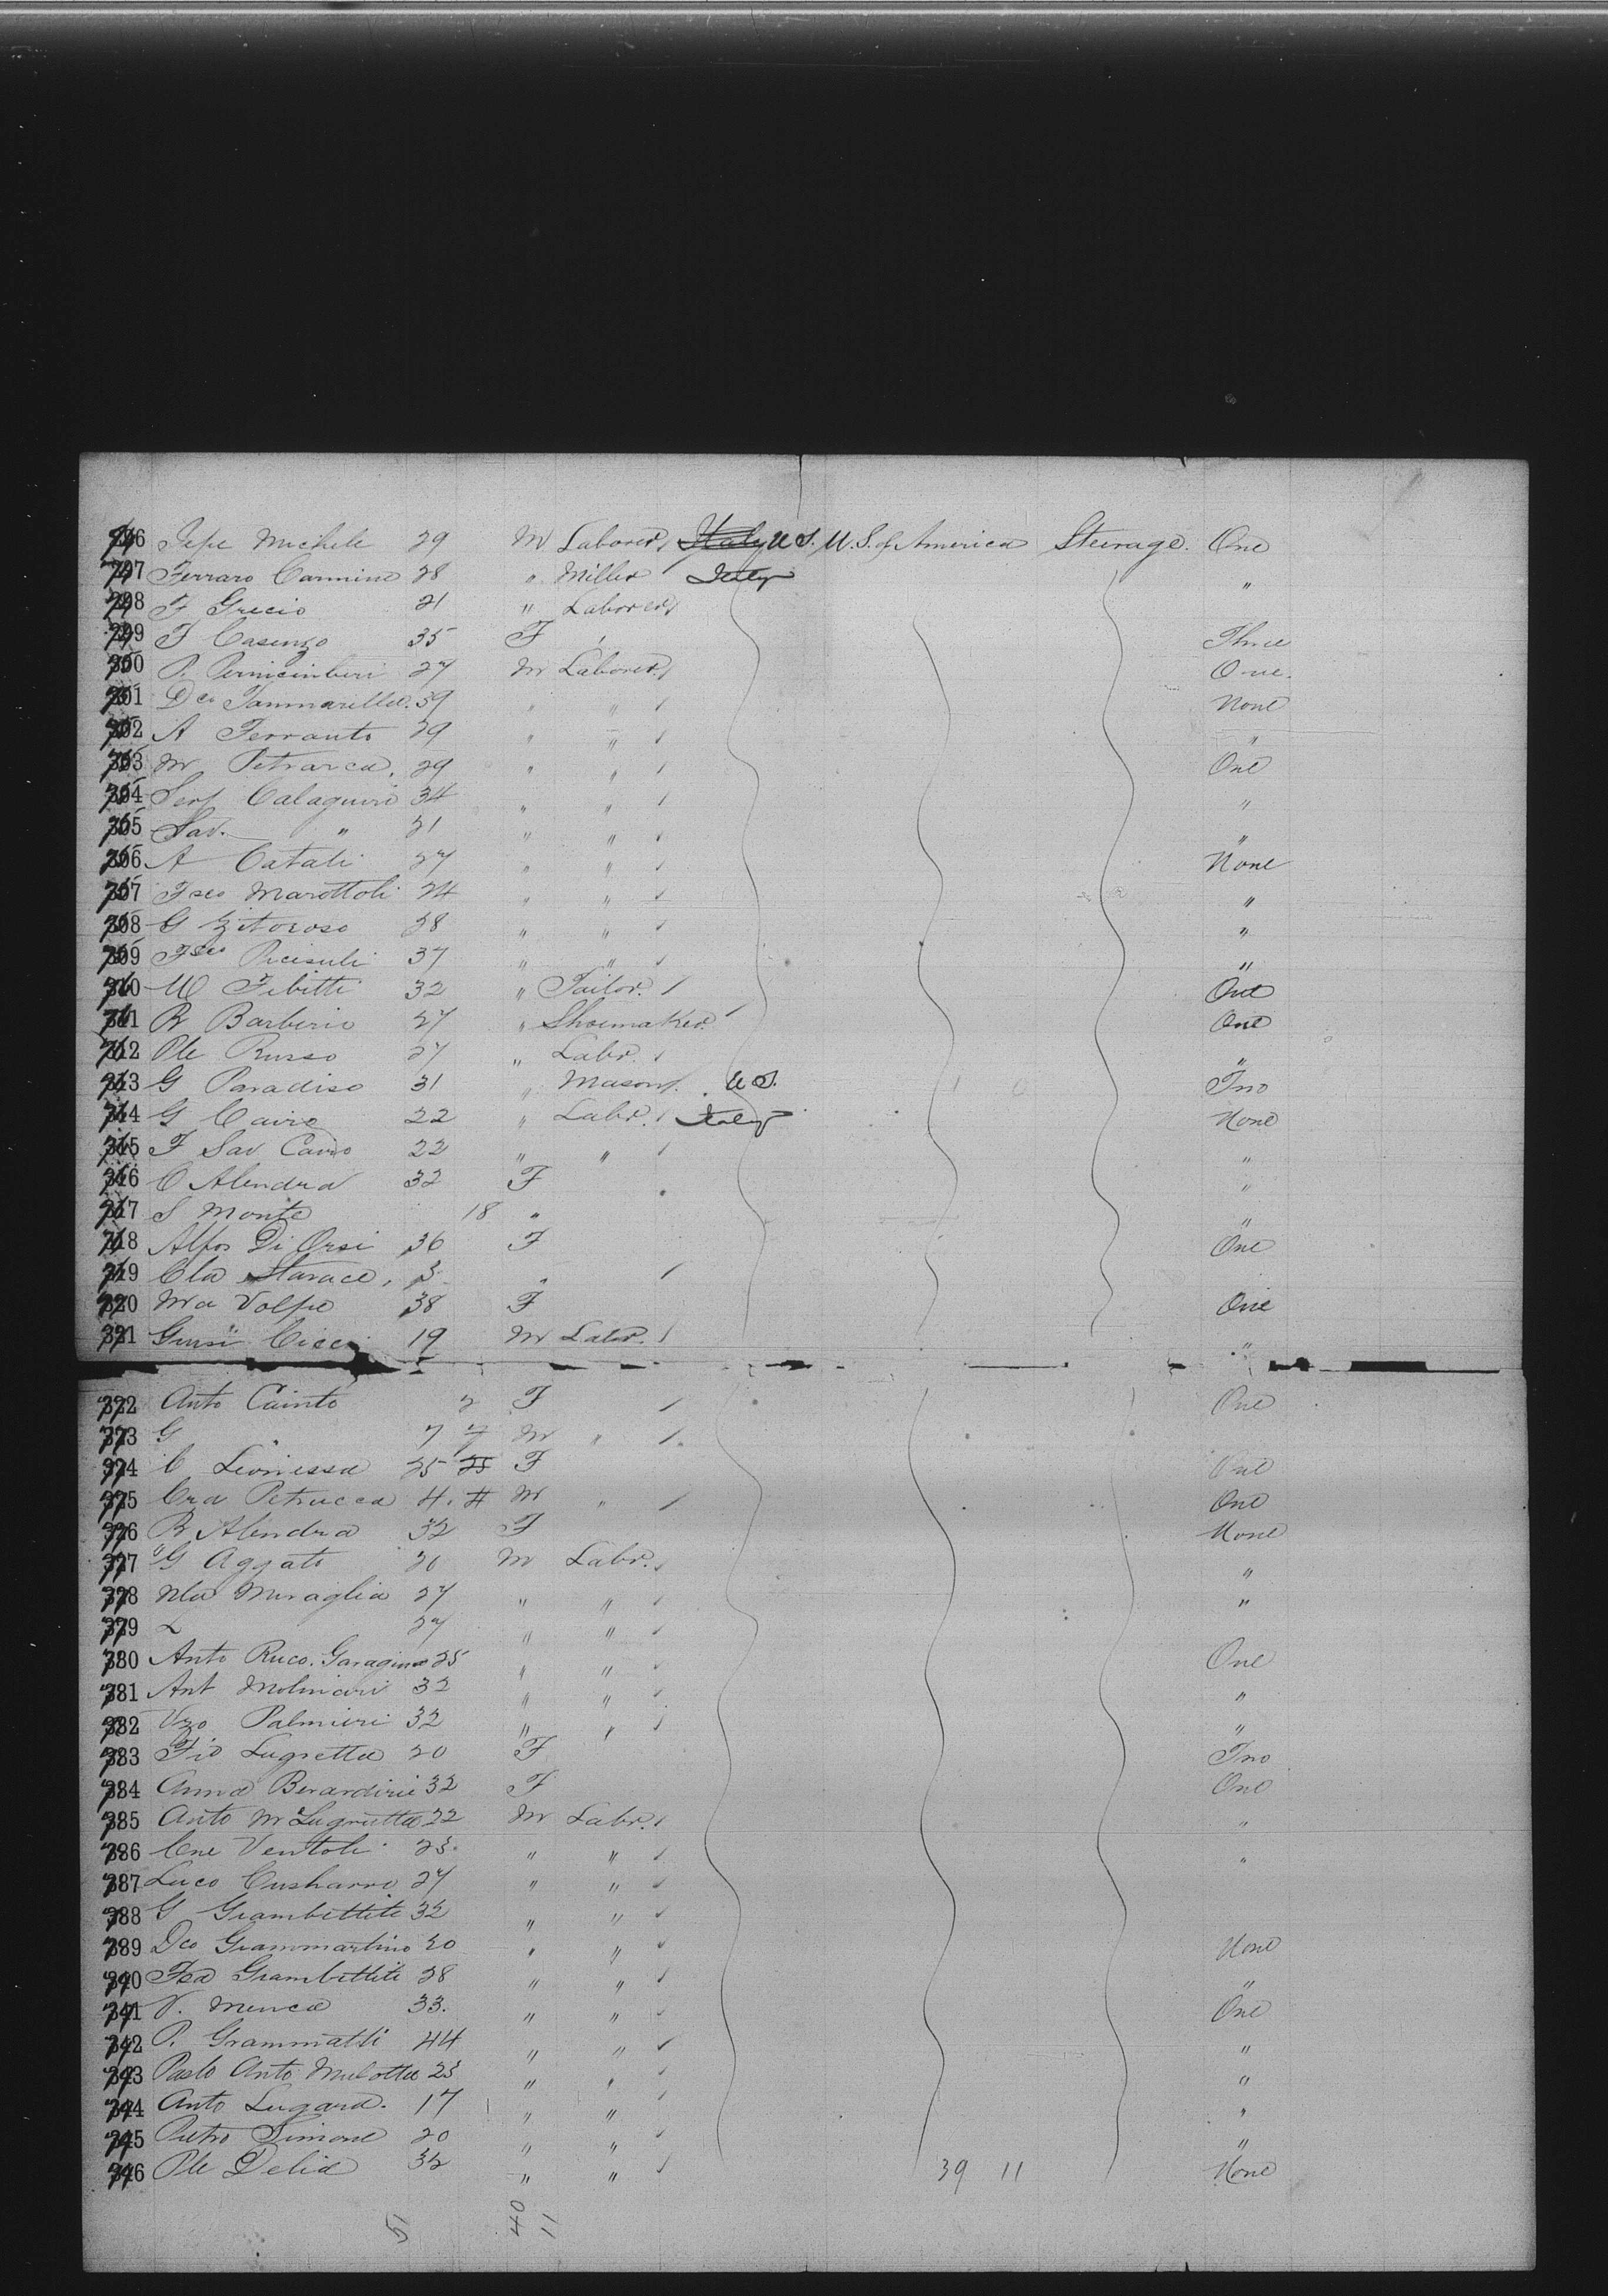 296 Pepe Michele 29 M Laborer Italy U.S. U.S. of America Steerage. One
297 Ferraro Carmine 28 " Miller Italy "
298 F Grecio 21 " Laborer
299 F Casenzo 35 F Three
300 P. 27 M Laborer One.
301 Dco Tammarillo. 39 " " None
302 A Ferranto 29 " " "
303 M Petrarca. 29 " " One
304 Serf Calaguiri 34 " " "
305 Sav. " 21 " " "
306 A Catali 27 " " None
307 Fsco Marottoli 24 " " "
308 G Zitoroso 38 " " "
309 Fsco 37 " " "
310 M Tibitti 32 " Tailor. One
311 R Barberio 27 " Shoemaker. One
312 Ple Russo 27 " Labr. "
313 G Paradiso 31 " Mason. U S. Two
314 G Cairo 22 " Labr. Italy None
315 F Sav Cairo 22 " " "
316 C Alendra 32 F "
317 S Monte 18 " "
318 Alfos Di Orsi 36 F One
319 Cla Starace, 3 "
320 Ma Volpe 38 F One
321 Cicc 19 M Labr. "
322 Anto Cainto 2 F One
323 G " 7 7 M "
324 C Lionessa 25 25 F One
325 Cra Petrucca 4. 4 M " One
326 R Alendra 32 F None
327 G Aggato 20 M Labr. "
328 Nla Miraglia 27 " " "
329 L 27 " "
380 Anto Ruco. 25 " " One
381 Ant Molinari 32 " " "
382 Vzo Palmieri 32 " " "
383 Fio Lugretta 20 F Two
384 Anna Berardini 32 F One
385 Anto M Lugrutta 22 M Labr. "
386 Cne Ventoli 23. " " "
387 Luco Cusharro 27 " "
388 G Giambettite 32 " "
389 Dco Giammartino 20 " " None
340 Fed Giambettiti 28 " " "
341 V. Menca 33. " " One
342 P. Grammatti 44 " " "
343 Paolo Anto Mulotta 23 " " "
344 Anto Lugara. 17 " " "
345 Pietro Simone 20 " " "
346 Ple Delia 32 " " 39 11 None
51 40
11